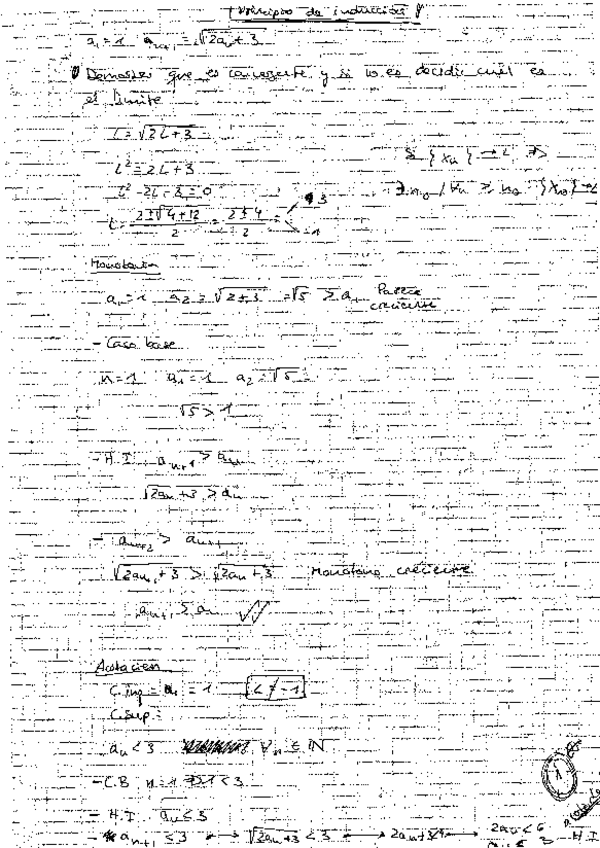 Principio de inducción
a₁ = 1 aₙ₊₁ = √2aₙ + 3
Demostrar que es convergente y si no es decidir cuál es
el límite
L = √2L + 3
L² = 2L + 3
L² - 2L - 3 = 0
L = 2 ± √4 + 12 / 2 = 2 ± 4 / 2 = 3 -1
Si {xₙ} → L ⇒
∃ n₀ / ∀n ≥ n₀ {xₙ} → L
Monotonía
a₁ = 1 a₂ = √2 + 3 = √5 > a₁ Parece creciente
- Caso base
n = 1 a₁ = 1 a₂ = √5
√5 > 1
- H.I. aₙ₊₁ > aₙ
√2aₙ + 3 > aₙ
- aₙ₊₂ > aₙ₊₁
√2aₙ₊₁ + 3 > √2aₙ + 3 Monótona creciente
aₙ₊₁ > aₙ
Acotación
C. inf = a₁ = 1 L ≠ -1
C. sup:
aₙ < 3 ∀n ∈ ℕ
- C.B n = 1 1 < 3
- H.I. aₙ ≤ 3
- aₙ₊₁ ≤ 3 → √2aₙ + 3 < 3 → 2aₙ + 3 < 9 → 2aₙ < 6
H.I